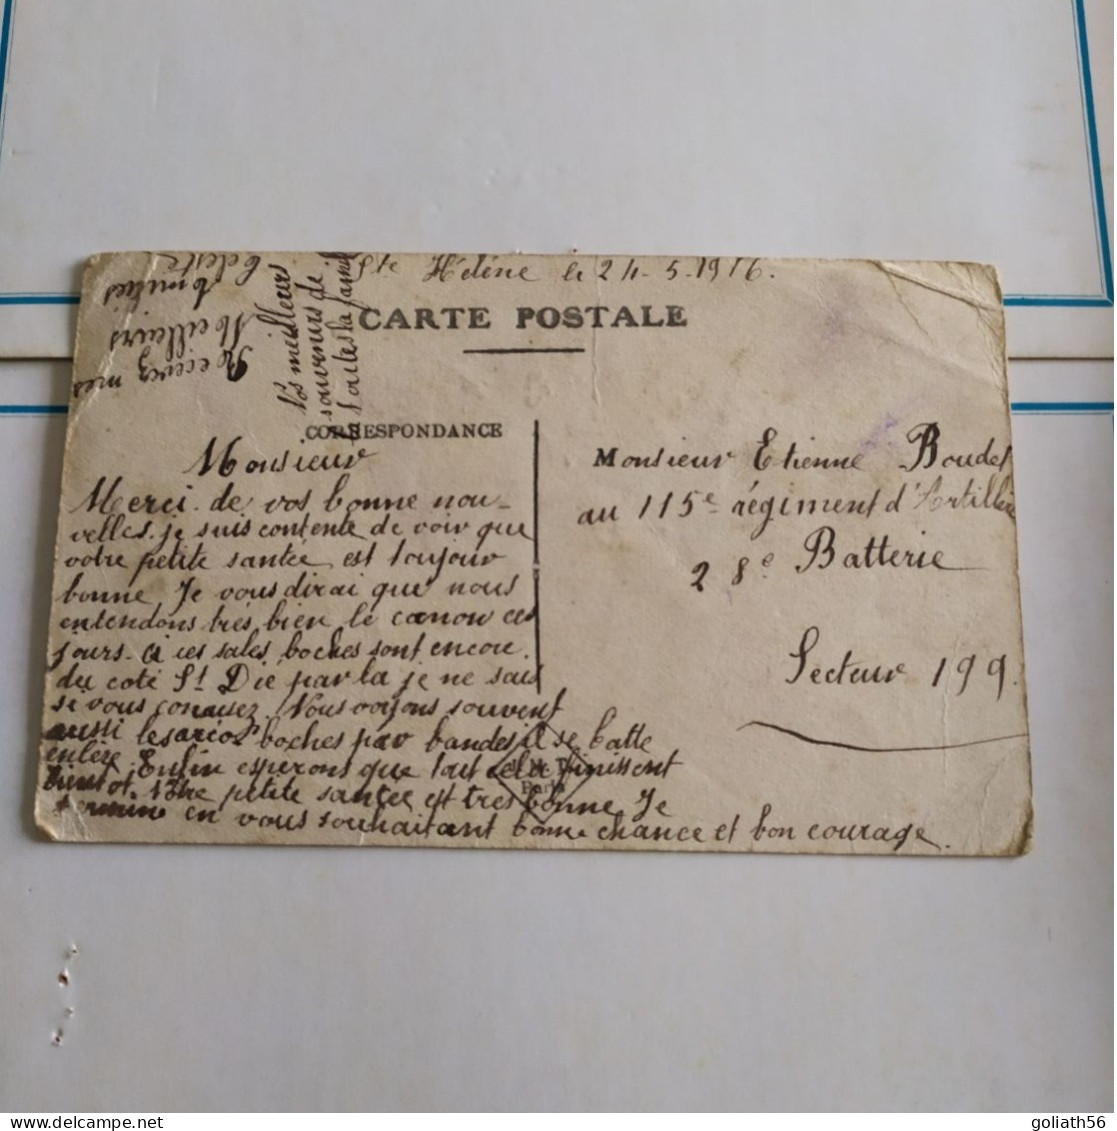 Ste Hélène le 24-5-1916.
CARTE POSTALE
CORRESPONDANCE
Monsieur
Merci de vos bonne nou-
velles. je suis contente de voir que
votre petite santée est toujour
bonne Je vous dirai que nous
entendons très bien le canon ces
jours-ci ces sales boches sont encore
du coté St Dié par la je ne sais
se vous conaisez Nous voyons souvent
aussi les boches par bandes il se batte
Enfin esperons que tout cela finissent
bientot. Nôtre petite santée est très bonne. Je
termine en vous souhaitant bonne chance et bon courage.
Recevez mes
Meilleurs
Amitiés
Celeste
Nos meilleurs
souvenirs de
toutes la famil
Monsieur Etienne Boudet
au 115e régiment d'Artillerie
28e Batterie
Secteur 199.
Paris
goliath56